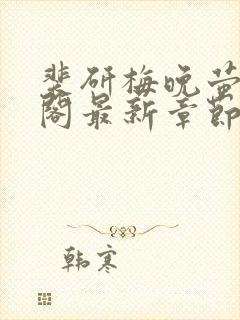 裴研梅晚萤
阁最新章节
韩寒